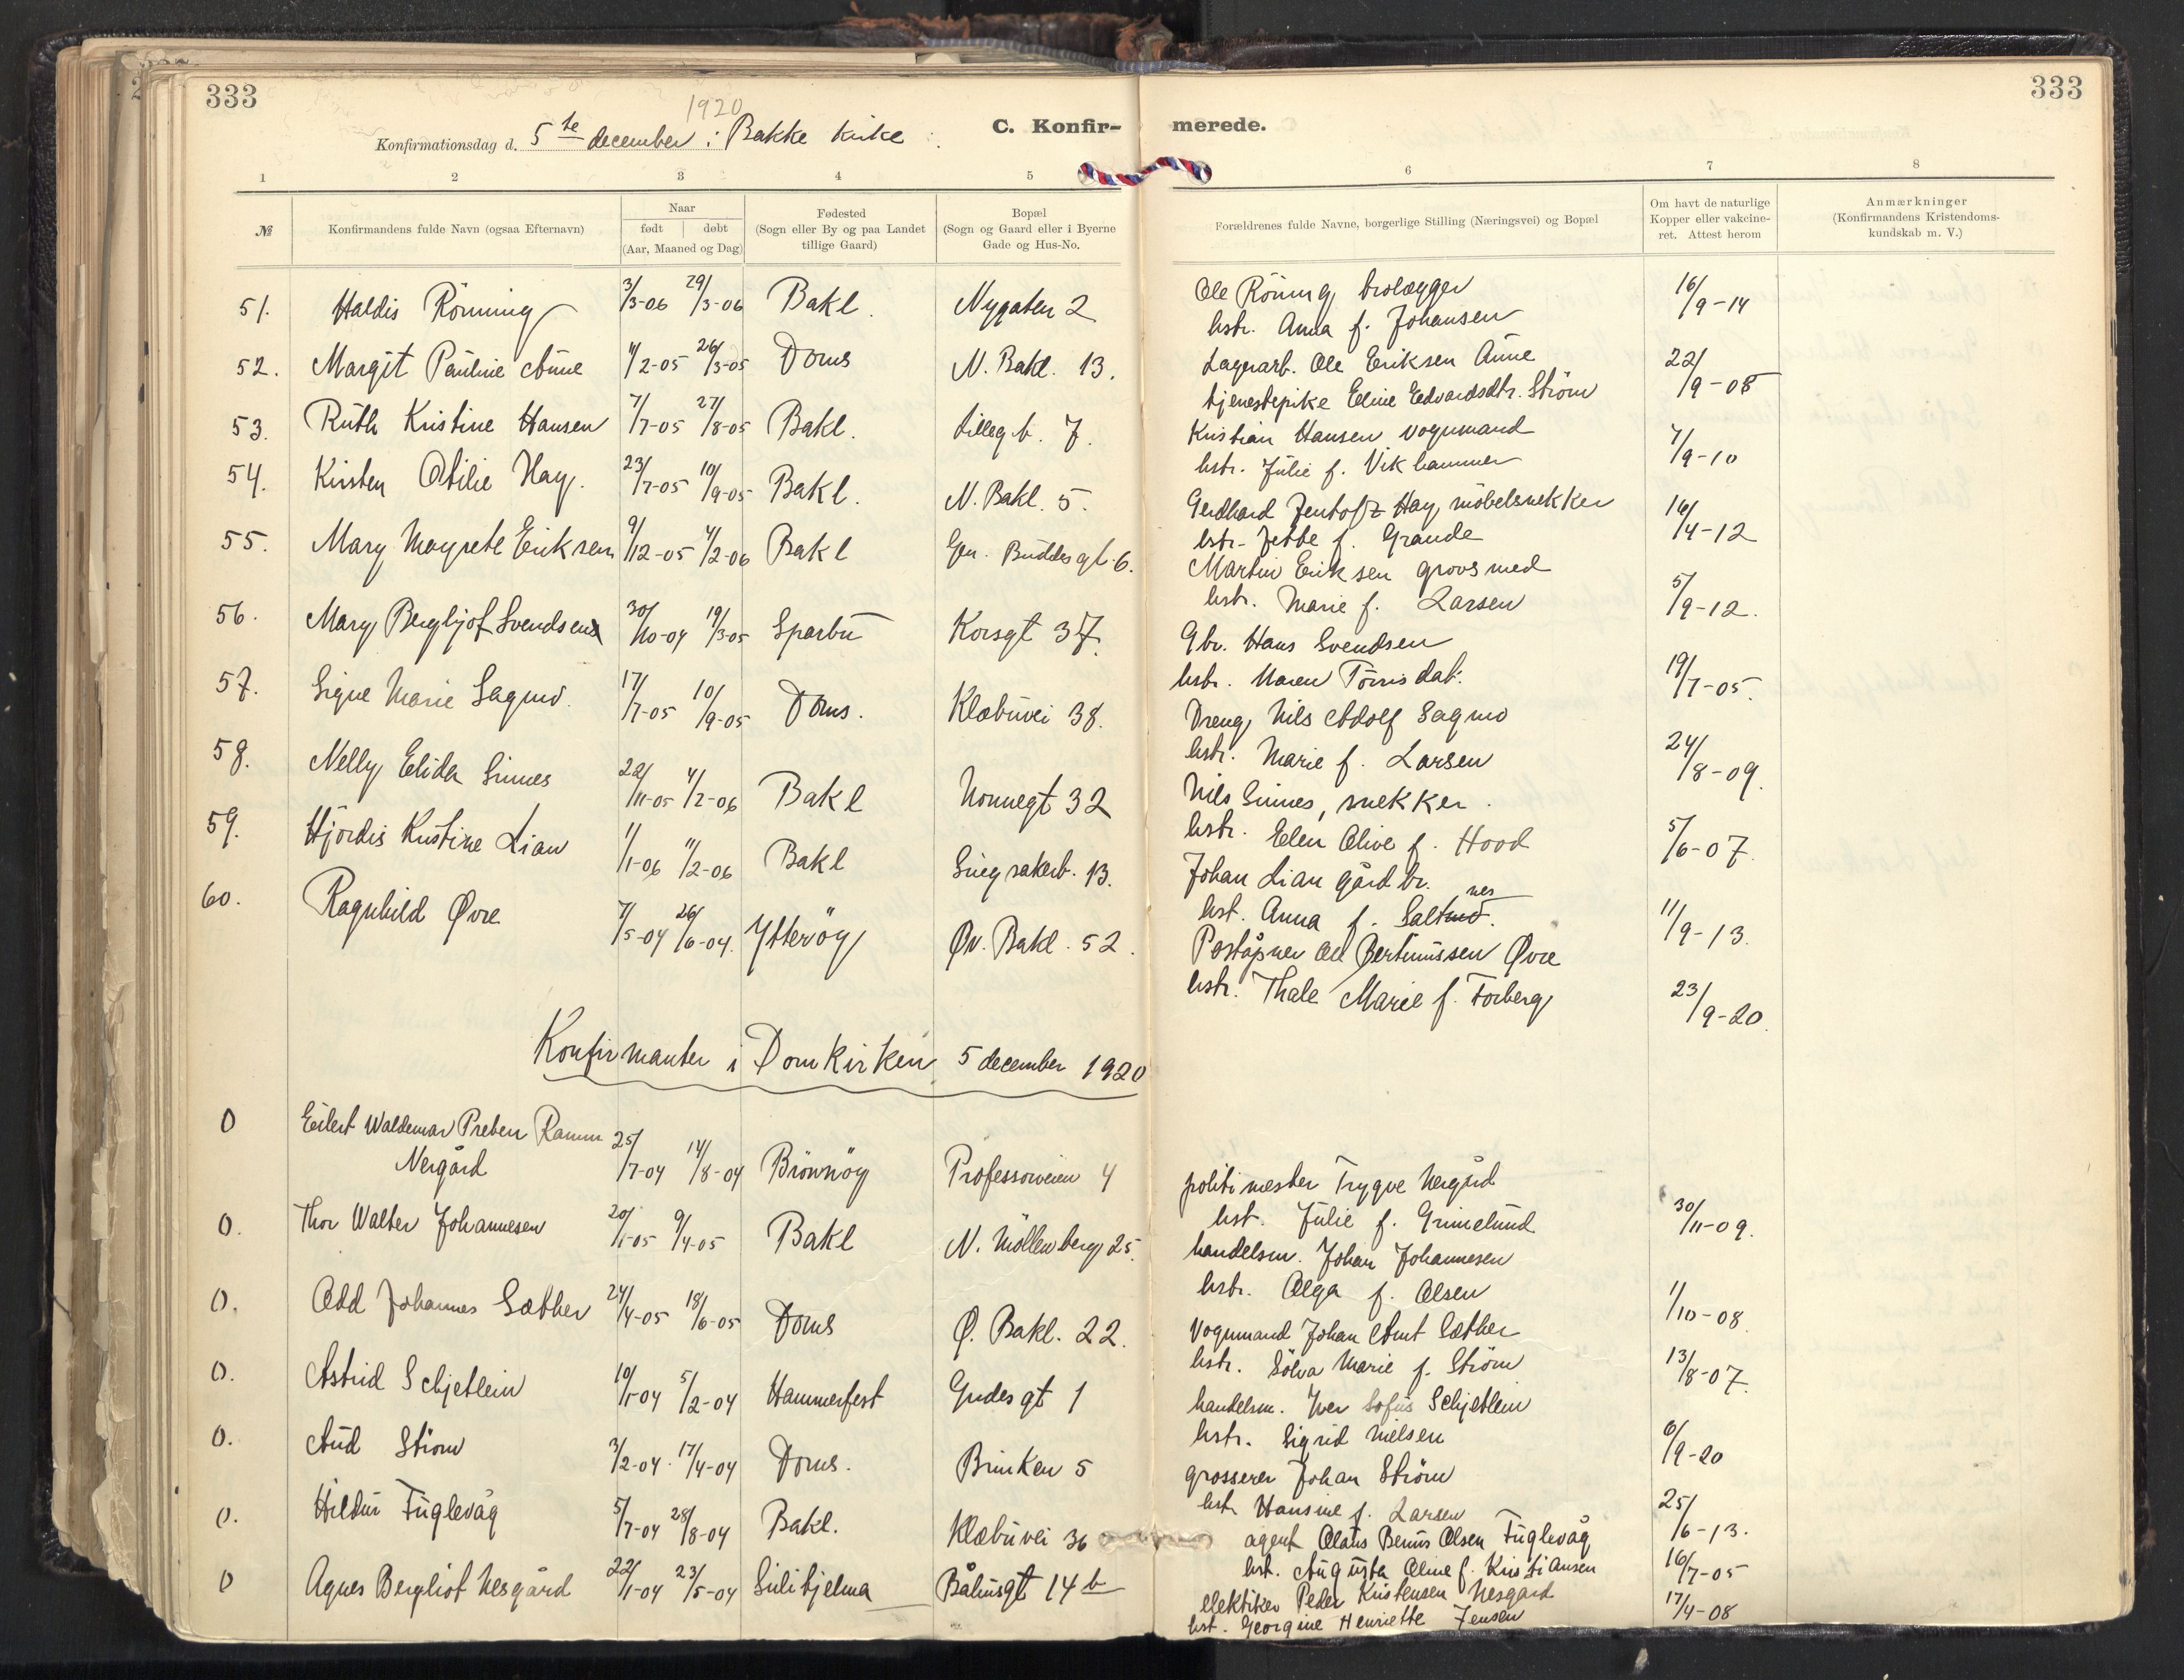 333
333
1920
Konfirmationsdag d. 5te december i Bakke kirke
C. Konfir-
merede.
1 2 3 4 5 6 7 8
№
Konfirmandens fulde Navn (ogsaa Efternavn)
Naar
født døbt
(Aar, Maaned og Dag)
Fødested
(Sogn eller By og paa Landet
tillige Gaard)
Bopæl
(Sogn og Gaard eller i Byerne
Gade og Hus-No.
Forældrenes fulde Navne, borgerlige Stilling (Næringsvei) og Bopæl
Om havt de naturlige
Kopper eller vakcine-
ret. Attest herom
Anmærkninger
(Konfirmandens Kristendoms-
kundskab m. V.)
51. Haldis Rönning 3/3-06 29/3-06 Bakl. Nygaten 2
Ole Röning, brolægger
hstr. Anna f. Johansen
16/9-14
52. Margit Pauline Aune 11/2-05 26/3-05 Doms N. Bakl. 13.
Lagerarb. Ole Eriksen Aune
tjenestepike Eline Edvardsdtr. Ström
22/9-08
53. Ruth Kristine Hansen 7/7-05 27/8-05 Bakl. Lillegt. 7.
Kristian Hansen vognmand
hstr. Julie f. Vikhammer
7/9-10
54. Kirsten Otilie Hay. 23/7-05 10/9-05 Bakl. N. Bakl. 5.
Gerdhard Jentoft Hay, möbelsnekker
hstr. Jette f. Grande
16/4-12
55. Mary Magrete Eriksen 9/12-05 4/2-06 Bakl Gen. Buddes gt. 6.
Martin Eriksen grovsmed
hstr. Marie f. Larsen
5/9-12.
56. Mary Bergljot Svendsen 30/10-04 19/3-05 Sparbu Korsgt 37.
Gbr. Hans Svendsen
hstr. Maren Törrisdat.
19/7-05.
57. Signe Marie Sagmo. 17/7-05 10/9-05 Doms. Klæbuvei 38.
Dreng, Nils Adolf Sagmo
hstr. Marie f. Larsen
24/8-09.
58. Nelly Elida Sinnes 22/11-05 4/2-06 Bakl Nonnegt 32
Nils Sinnes, snekker.
hstr. Elen Olive f. Hood
5/6-07.
59. Hjördis Kristine Lian 1/1-06 11/2-06 Bakl Singsakerb. 13.
Johan Lian gårdbr.
hst. Anna f. Saltnes.
11/9-13.
60. Ragnhild Øvre 7/5-04 26/6-04. Ytteröy Øv. Bakl. 52.
Poståpner Ole Bertinussen Øvre
hstr. Thale Marie f. Forberg
23/9-20.
Konfirmanter i Domkirken 5 december 1920
0 Eilert Waldemar Preben Ramm
Nergård 25/7-04 14/8-04 Brönnöy Professorveien 4
politimester Trygve Nergård
hst. Julie f. Grimelund
30/11-09.
0. Thor Walter Johannesen 20/1-05 9/4-05 Bakl N. Möllenberg 25.
handelsm. Johan Johannesen
hstr. Olga f. Olsen
1/10-08.
0. Odd Johannes Sæther 24/4-05 18/6-05 Doms Ø. Bakl. 22.
Vognmand Johan Arnt Sæther
hstr. Sölva Marie f. Ström
13/8-07.
0. Astrid Schjetlein 10/1-04 5/2-04 Hammerfest Gudesgt 1
handelsm. Iver Sofus Schjetlein
hstr. Sigrid Nielsen
6/9-20
0. Aud Ström 3/2-04. 17/4-04 Doms. Brinken 5
grosserer Johan Ström
hstr. Hansine f. Larsen
25/6-13.
0. Hildur Fuglevåg 5/7-04 28/8-04 Bakl. Klæbuvei 36
agent Olaus Benus Olsen Fuglevåg
hst. Augusta Oline f. Kristiansen
16/7-05
0 Agnes Bergliot Nesgård 22/1-04 23/5-04 Sulitjelma Bålhusgt 14b
elektiker Peder Kristensen Nesgård
hst. Georgine Henriette Jensen
17/4-08